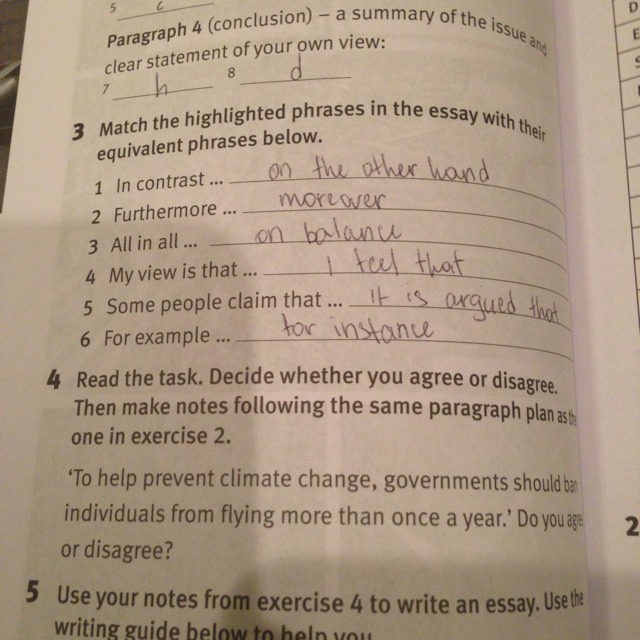 5 c
Paragraph 4 (conclusion) – a summary of the issue and
clear statement of your own view:
7 h 8 d
3 Match the highlighted phrases in the essay with their
equivalent phrases below.
1 In contrast ... on the other hand
2 Furthermore ... moreover
3 All in all ... on balance
4 My view is that ... I feel that
5 Some people claim that ... it is argued that
6 For example ... for instance
4 Read the task. Decide whether you agree or disagree.
Then make notes following the same paragraph plan as the
one in exercise 2.
'To help prevent climate change, governments should ban
individuals from flying more than once a year.' Do you agree
or disagree?
5 Use your notes from exercise 4 to write an essay. Use the
writing guide below to help you.
D
E
2